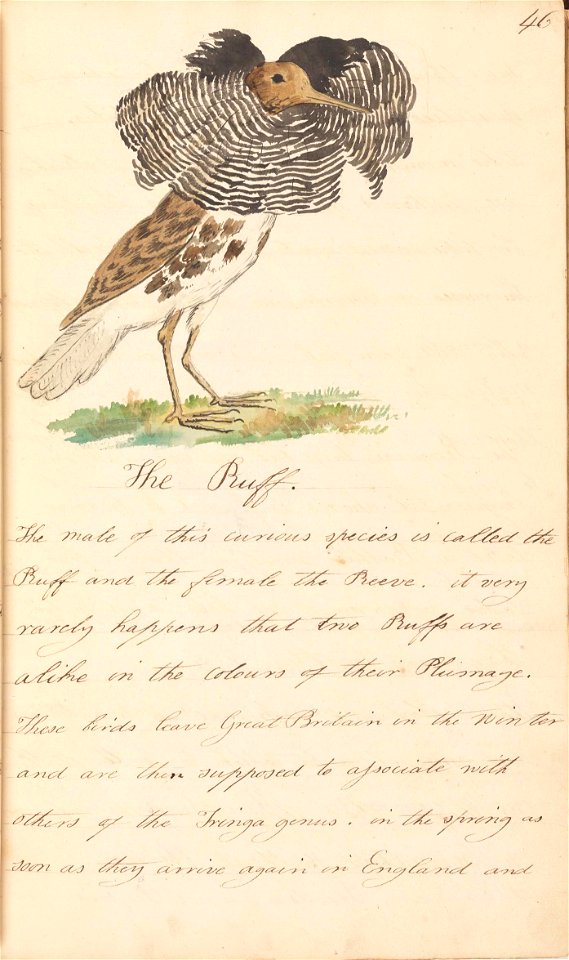 46
The Ruff.
The male of this curious species is called the
Ruff and the female the Reeve. it very
rarely happens that two Ruffs are
alike in the colours of their Plumage.
These birds leave Great Britain in the winter
and are then supposed to aſsociate with
others of the Tringa genus. in the spring as
soon as they arrive again in England and